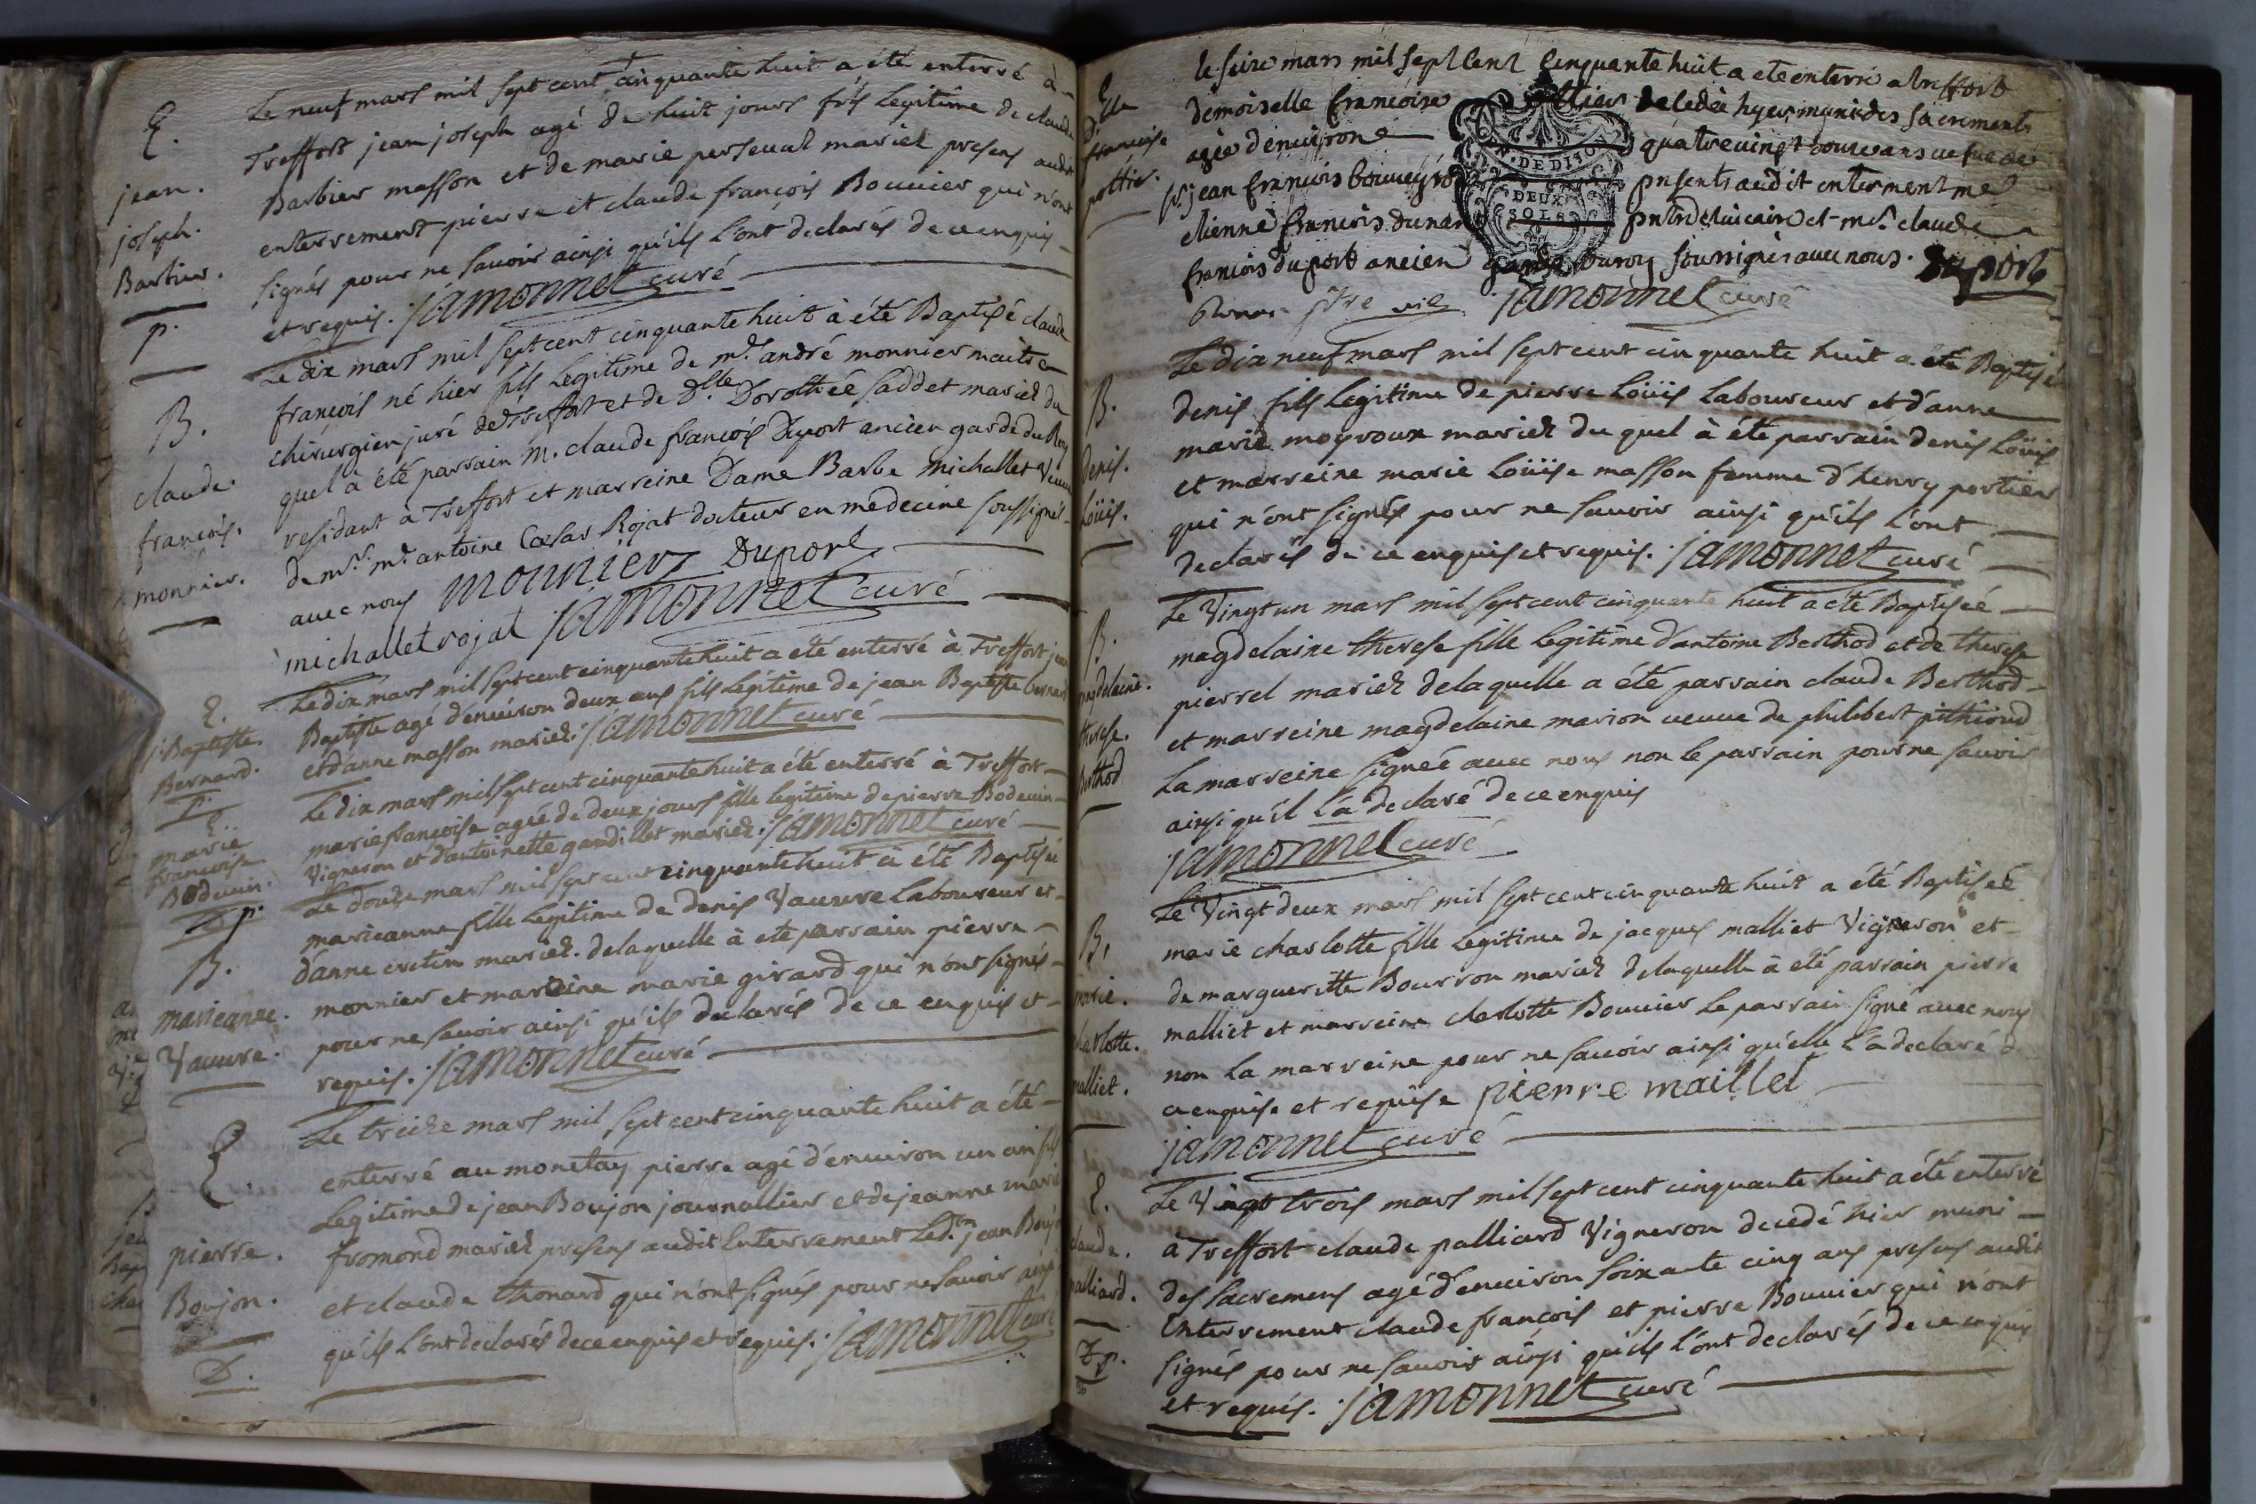 E.
jean.
joseph.
Barbier.
p.
Le neuf mars mil sept cent cinquante huit a été enterré à
Treffort jean joseph agé de huit jours fils legitime de claude
Barbier masson et de marie perseval mariez presens audit
enterrement pierre et claude françois Bouuier qui n'ont
signés pour ne sauoir ainsi qu'ils l'ont declarés de ce enquis
et requis. jamonnet curé
B.
claude.
françois.
monnier.
Le dix mars mil sept cent cinquante huit à été Baptisé claude
françois né hier fils legitime de mr. andré monnier maitre
chirurgien juré de Treffort et de Dlle. Dorothée Saddet mariez du
quel a été parrain M. claude françois Duport ancien garde du Roy
residant à Treffort et marreine Dame Barbe michallet veuue
de mr. mr. antoine Cæsar Rojat docteur en medecine soussignés
auec nous mounier Duport
michallet rojat jamonnet curé
E.
j. Baptiste.
Bernard.
p.
Le dix mars mil sept cent cinquante huit a été enterré à Treffort jean
Baptiste agé d'enuiron deux ans fils legitime de jean Baptiste bernard
et d'anne masson mariez. jamonnet curé
E.
marie
françoise
Boduin.
p.
Le dix mars mil sept cent cinquante huit a été enterré à Treffort
marie françoise agée de deux jours fille legitime de pierre Bodeuin
Vigneron et d'antoinette gandillet mariez. jamonnet curé
B.
marieanne.
Vauure.
Le douze mars mil sept cent cinquante huit à été Baptisée
marieanne fille legitime de denis Vauure laboureur et
d'anne cretin mariez. de laquelle à été parrain pierre
monnier et marreine marie girard qui n'ont signés
pour ne sauoir ainsi qu'ils declarés de ce enquis et
requis. jamonnet curé
E.
pierre.
Boujon.
D.
Le treize mars mil sept cent cinquante huit a été
enterré au monetay pierre agé d'enuiron un an fils
legitime de jean Boujon journallier et de jeanne marie
fromond mariez presens audit Enterrement led. jean Boujon
et claude thonard qui n'ont signés pour ne sauoir ainsi
qu'ils l'ont declarés de ce enquis et requis. jamonnet curé
E
Dlle
francoise
pottier.
le seize mars mil sept cent cinquante huit a ete enterrée a treffort
demoiselle francoise decedée hyer munie des sacrements
agée denuiron quatre vingt douze ans vefue de
sr. jean francois bouueyrod presents audit enterrement mre
etienne francois dunand pretre vicaire et mr. claude
francois duport ancien garde du roy soussignés auec nous. Duport
DEUX
SOLS
ptre vic jamonnet curé
B.
denis.
Loüis.
Le dix neuf mars mil sept cent cinquante huit a été Baptisé
denis fils legitime de pierre Loüis laboureur et d'anne
marie moyroux mariez du quel à été parrain denis Loüis
et marreine marie Loüise masson femme d'henry portier
qui n'ont signés pour ne sauoir ainsi qu'ils l'ont
declarés de ce enquis et requis. jamonnet curé
B.
magdelaine.
therese.
Berthod
Le Vingt un mars mil sept cent cinquante huit a été Baptisée
magdelaine therese fille legitime d'antoine Berthod et de therese
pierrel mariez de laquelle a été parrain claude Berthod
et marreine magdelaine marion ueuue de philibert pithioud
la marreine signée auec nous non le parrain pour ne sauoir
ainsi qu'il l'a declaré de ce enquis
jamonnet curé
B.
marie.
charlotte.
malliet.
Le Vingt deux mars mil sept cent cinquante huit a été Baptiseé
marie charlotte fille legitime de jacques malliet Vigneron et
de marguerite Bourron mariez de laquelle à été parrain pierre
malliet et marreine charlotte Bouuier le parrain signé auec nous
non la marreine pour ne sauoir ainsi qu'elle l'a declaré de
ce enquise et requise pierre maillet
jamonnet curé
E.
claude.
palliard.
D p.
Le Vingt trois mars mil sept cent cinquante huit a été enterré
à Treffort claude palliard Vigneron decedé hier muni
des sacremens agé d'enuiron soixante cinq ans presens audit
Enterrement claude françois et pierre Bouuier qui n'ont
signés pour ne sauoir ainsi qu'ils l'ont declarés de ce enquis
et requis. jamonnet curé